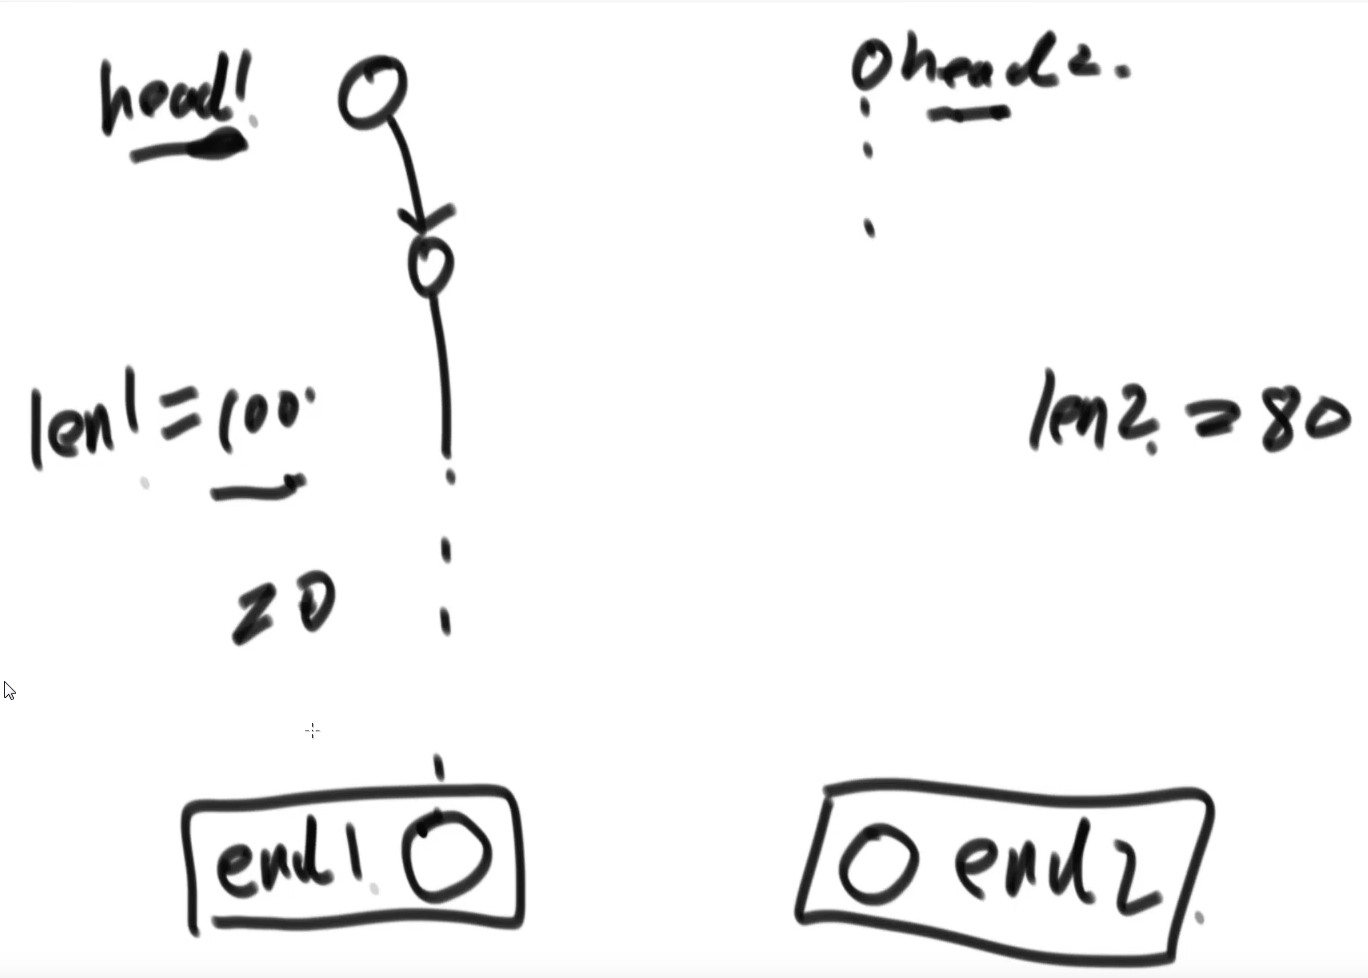 head1
head2
len1=100
len2=80
20
end1
end2